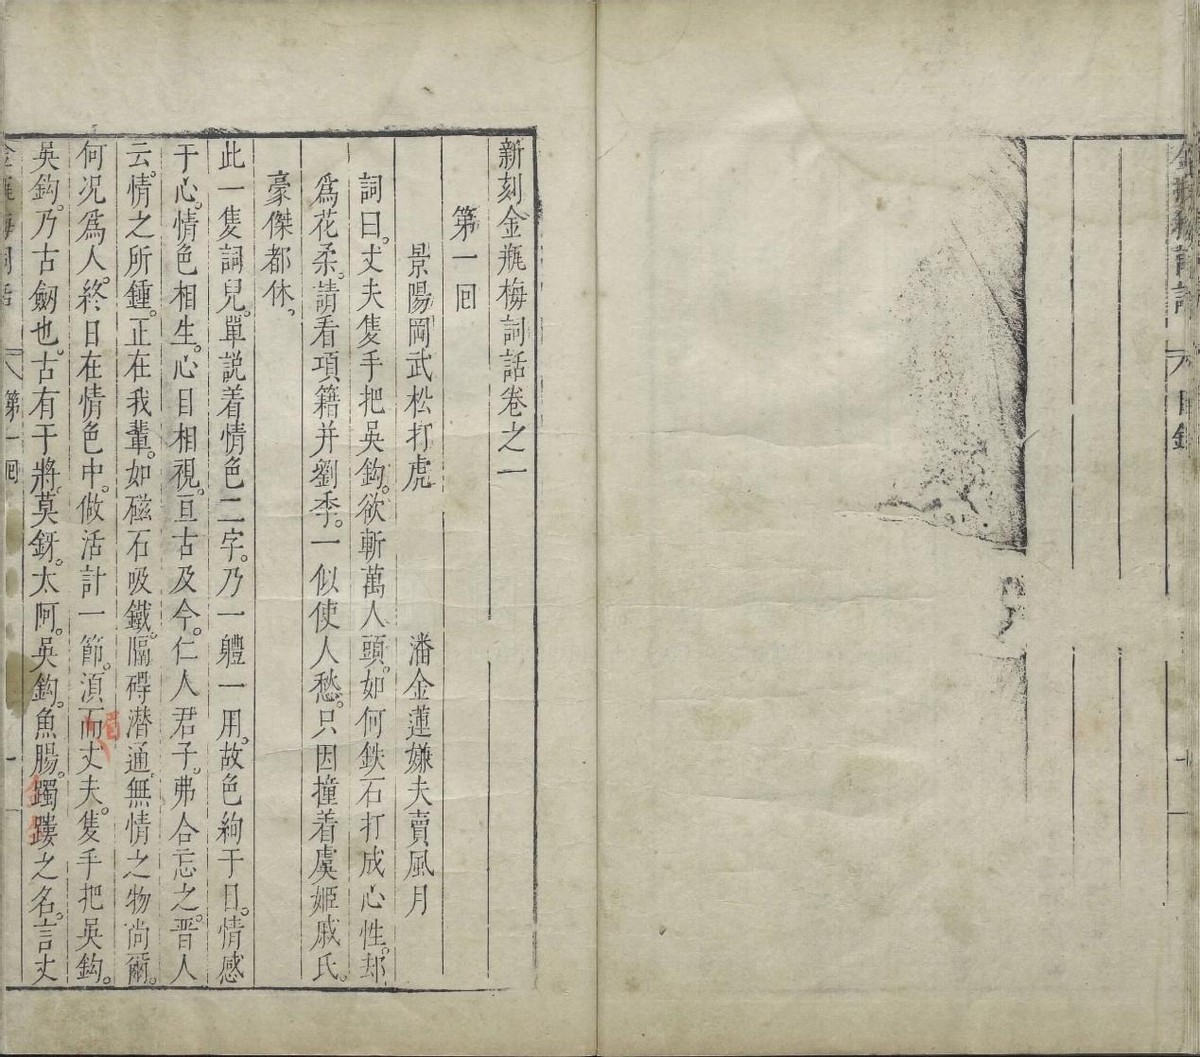 金瓶梅詞話
目錄
新刻金瓶梅詞話卷之一
第一回
景陽岡武松打虎　潘金蓮嫌夫賣風月
詞曰。丈夫隻手把吳鈎。欲斬萬人頭。如何鉄石打成心性。却
爲花柔。請看項籍并劉季。一似使人愁。只因撞着虞姬戚氏。
豪傑都休。
此一隻詞兒。單説着情色二字。乃一體一用。故色絢于目。情感
于心。情色相生。心目相視。亘古及今。仁人君子。弗合忘之。晋人
云。情之所鍾。正在我輩。如磁石吸鐵。隔碍潜通。無情之物尚爾。
何况爲人。終日在情色中。做活計一節。須而丈夫。隻手把吳鈎。
吳鈎。乃古劒也。古有干將。莫釾。太阿。吳鈎。魚腸。躅䠱之名。言丈
金瓶梅詞話
第一回
一